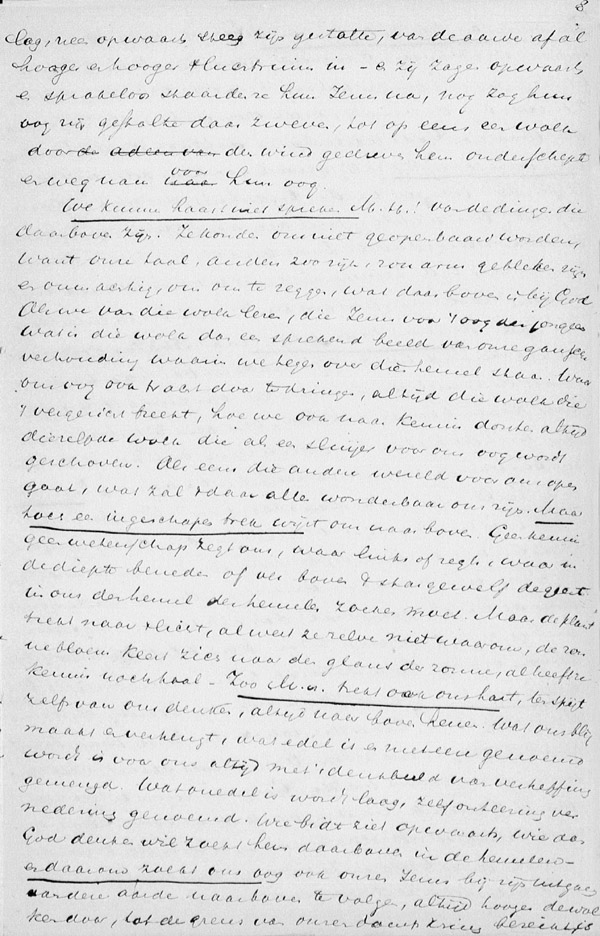 3
lag, nee opwaarts steeg zijn gestalte, van de aarde af al
hooger en hooger 't luchtruim in - en zij zagen opwaarts
en sprakeloos staarden ze hun Jezus na, nog zag hun
oog zijn gestalte daar zweven, tot op eens een wolk
door de adem van den wind gedreven hem onderschepte
en weg nam voor hun oog.
We kunnen haast niet spreken M. H.! van de dingen die
daarboven zijn. Ze konden ons niet geopenbaard worden,
want onze taal, anders zoo rijk, zou arm gebleken zijn
en onmachtig, om ons te zeggen, wat daar boven is bij God
Als we van die wolk lezen, die Jezus voor 't oog der jongeren
wat is die wolk dan een sprekend beeld van onze gansche
verhouding waarin we tegen over dien hemel staan. Waar
ons oog ook tracht door te dringen, altijd die wolk die
't vergezicht breekt, hoe we ook naar kennis dorsten altijd
diezelfde wolk die als een sluijer voor ons oog wordt
geschoven. Als eens die andere wereld voor ons open
gaat, wat zal 't daar alles wonderbaar ons zijn. Maar
toch een ingeschapen trek wijst ons naar boven. Geen kennis
geen wetenschap zegt ons, waar links of regts, waar in
de diepte beneden of ver boven 't stargewelf
in ons den hemel der hemelen zoeken moet. Maar de plant
trekt naar 't licht, al weet ze zelve niet waarom, de zon
nebloem keert zich naar den glans der zonne, al heeft ze
kennis noch taal - Zoo M. H. trekt ook ons hart, ten spijt
zelf van ons denken, altijd naar boven henen. Wat ons blij
maakt en verheugt, wat edel is en met eere genoemd
wordt is voor ons altijd met 't denkbeeld van verheffing
gemengd. Wat onedel is wordt laag, zelfonteering ver
nedering genoemd. Wie bidt ziet opwaarts, wie aan
God denken wil zoekt hem daarboven in de hemelen -
en daarom zoekt ons oog ook onzen Jezus bij zijn uitgaan
van deze aarde naar boven te volgen, altijd hooger de wol
ken door, tot de grens van onzen dampkring bereikt is